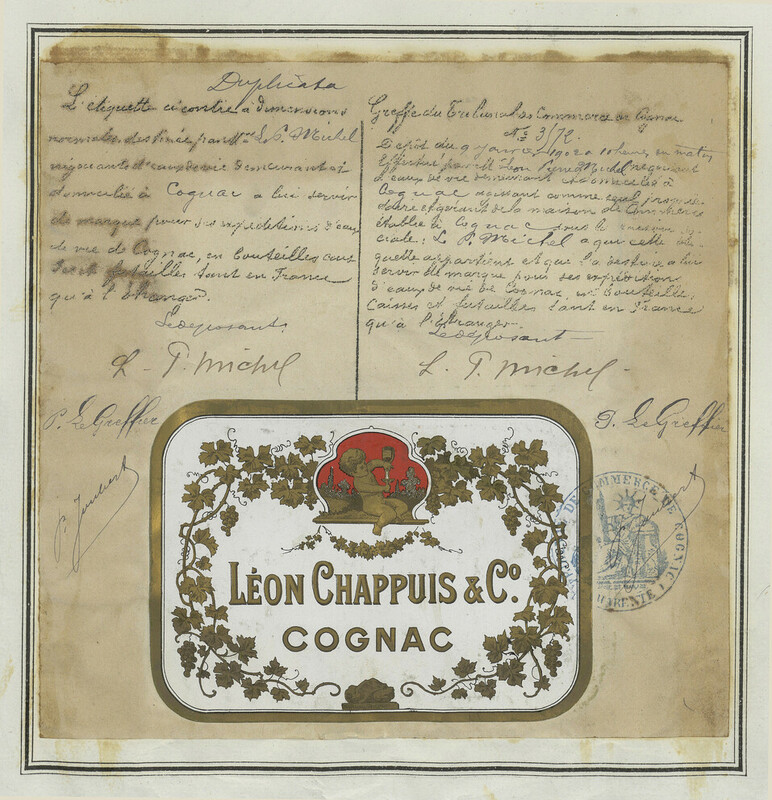 Duplicata
L'étiquette ci contre à dimensions
normales, destinée par Mr L. P. Michel
négociant d'eaux de vie demeurant et
domicilié à Cognac a lui servir
de marque pour ses expéditions d'eaux
de vie de Cognac, en bouteilles
et futailles tant en France
qu'à l'Etranger.
Le déposant.
L. P. Michel
P. Le Greffier
Greffe du Tribunal de Commerce de Cognac
No 3172.
Dépôt du 9 janvier à 10 heures du matin
Effectué par Mr Léon Michel négociant
d'eaux de vie demeurant et domicilié à
Cognac agissant comme seul proprié-
taire et gérant de la maison de Commerce
établie à Cognac sous la raison so-
ciale: L. P. Michel a qui cette éti-
quette appartient et que la destine a lui
servir de marque pour ses expéditions
d'eaux de vie de Cognac, en bouteilles,
caisses et futailles tant en France
qu'à l'étranger.
Le déposant
L. P. Michel
P. Le Greffier
LÉON CHAPPUIS & Co.
COGNAC
DE COMMERCE DE COGNAC
CHARENTE